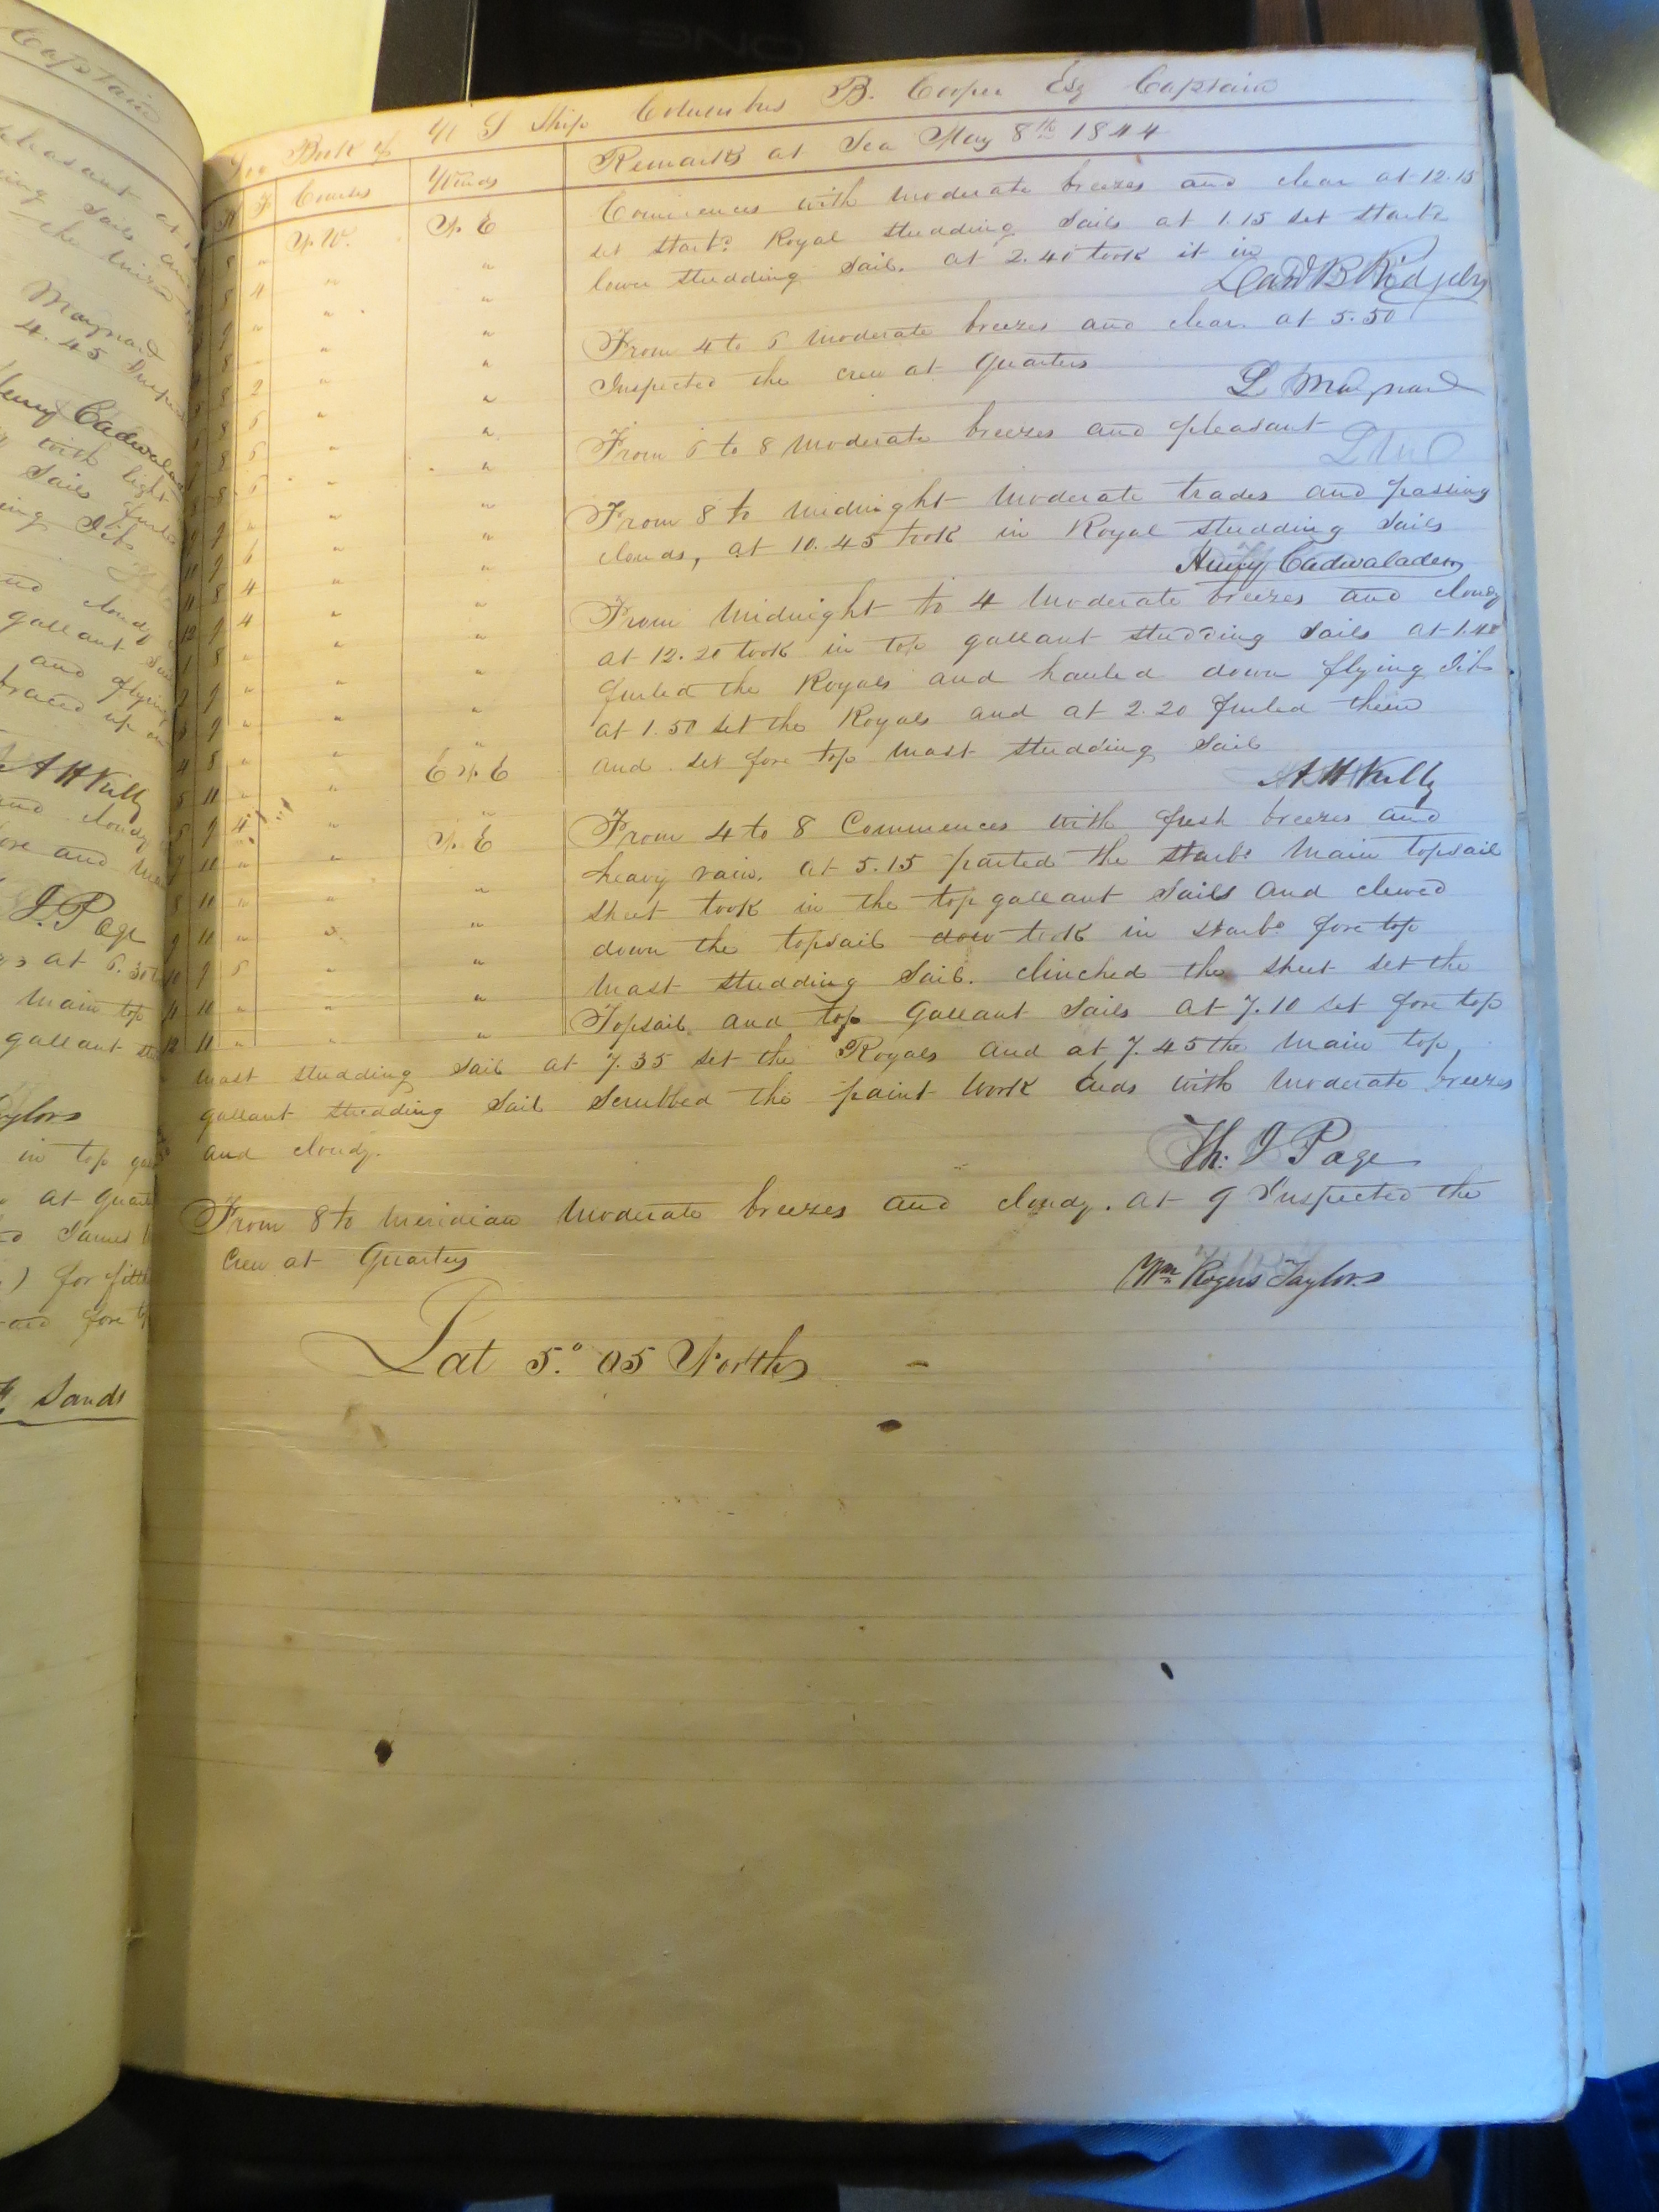 Captain
pleasant at
ing Sails and
the mizen
Maynard
4.45 Inspec
Henry Cadwalader
with light
Sails furled
ing Jib
and cloudy
gallant
and flying
braced up
A H Kilty
and cloudy
fore and
J. Page
at 6.30
main top
gallant
Taylor
in top
at Quarters
James
) for
and fore
Sands
Log Book of U S Ship Columbus B. Cooper Esq Captain
H F Courses Winds Remarks at Sea May 8th 1844
N. W. N. E
Commences with moderate breezes and clear at 12.15
set starbd Royal studding Sails at 1.15 set starbd
lower studding Sail. at 2.40 took it in
Danl B Ridgely
From 4 to 6 moderate breezes and clear. at 5.50
Inspected the crew at Quarters
L Maynard
From 6 to 8 moderate breezes and pleasant
L M
From 8 to midnight moderate trades and passing
clouds, at 10.45 took in Royal studding Sails
Henry Cadwalader
From Midnight to 4 moderate breezes and cloudy
at 12.20 took in top gallant studding Sails at 1.40
furled the Royals and hauled down flying Jib
at 1.50 set the Royals and at 2.20 furled them
and set fore top mast studding Sail
A H Kilty
E N E
From 4 to 8 Commences with fresh breezes and
N. E
heavy rain. at 5.15 parted the starbd Main topsail
sheet took in the top gallant Sails and clewed
down the topsail dow took in starbd fore top
mast studding Sail. clinched the sheet set the
Topsail and top Gallant Sails at 7.10 set fore top
mast studding Sail at 7.35 set the Royals and at 7.45 the main top
gallant studding Sail Scrubbed the paint work Ends with moderate breezes
and cloudy.
Th: J Page
From 8 to meridian moderate breezes and cloudy. at 9 Inspected the
Crew at Quarters
Wm Rogers Taylor
Lat 5.° 05 North